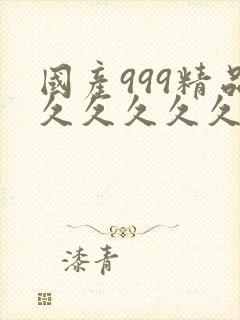 國產999精品
久久久久久
漆青